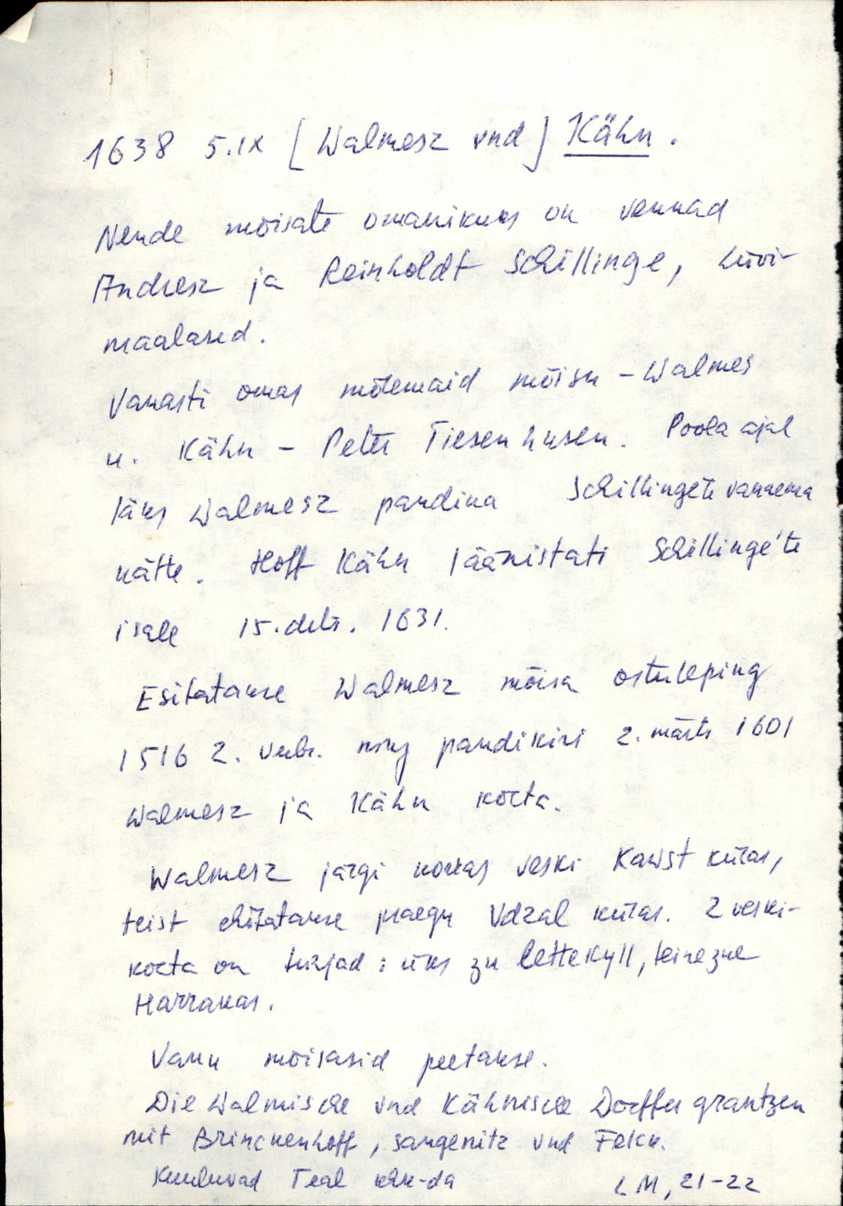 1638 5.IX [Walmesz vnd] Kähn.
Nende mõisate omanikus on vennad
Andresz ja Reinholdt Schillinge, Liivi-
maalased.
Vanasti omas mõlemaid mõisu - Walmes
u. Kähn - Peter Tiesenhusen. Poola ajal
läks Walmesz pandina Schillingete vanaema
kätte. Hoff Kähn läänistati Schillinge'te
isale 15. dets. 1631.
Esitatakse Walmesz mõisa ostuleping
1516 2. ning pandikiri 2. märts 1601
Walmesz ja Kähn kohta.
Walmesz järgi veski Kawst külas,
teist ehitatakse praegu Vdzal külas. 2 veski-
kohta on tühjad: üks zu Lettekyll, teine zue
Harrakas.
Vanu mõisasid peetakse.
Die Walmische vnd Kähnische Dörffer grantzen
mit Brinckenhoff, Sangenitz vnd Felcks.
Kuuluvad Teal khk-da LM, 21-22